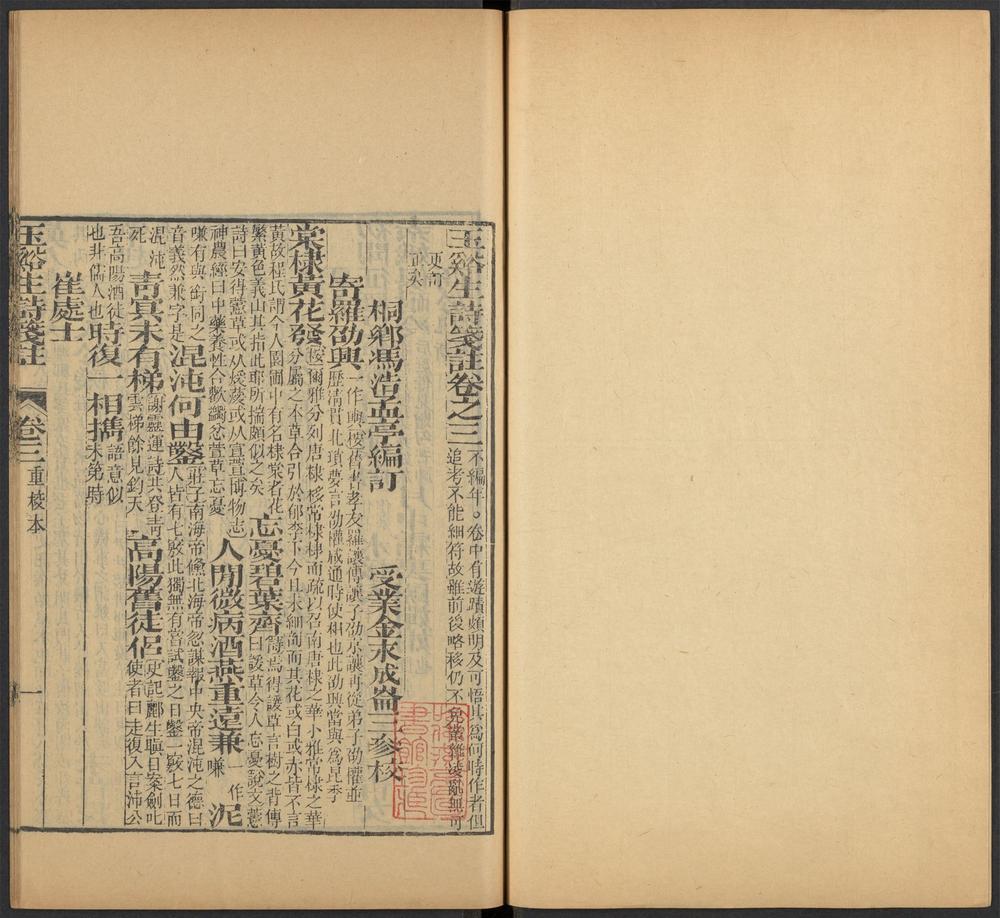 玉谿生詩箋註卷之三 不編年。卷中有遊蹟頗明及可悟其爲何時作者但追考不能細符故雖前後略移仍不免叢雜淩亂無可
更訂正矣
桐鄉馮浩孟亭編訂 受業金木成崙三參校
寄羅劭興 一作輿按舊書孝友羅讓傳讓子劭京讓再從弟子劭權並歷清貫北瑣夢言劭權咸通時使相也此劭興當與爲昆季
棠棣黃花發 按爾雅分列唐棣栘常棣棣而疏以召南唐棣之華小雅常棣之華分屬之本草合引於郁李下今且未細剖而其花或白或赤皆不言
黃故程氏謂今人園圃中有名棣棠者花繁黃色義山其指此耶所揣頗似之矣 忘憂碧葉齊 詩焉得諼草言樹之背傳曰諼草令人忘憂說文薏
詩曰安得藼草或从煖薆或从宣萱博物志神農經曰中藥養性合歡蠲忿萱草忘憂 人閒微病酒燕重遠兼 一作嗛 泥
嗛有與銜同之音義然兼字是 混沌何由鑿 莊子南海帝儵北海帝忽謀報中央帝混沌之德曰人皆有七竅此獨無有嘗試鑿之日鑿一竅七日而
混沌死 靑冥未有梯 謝靈運詩共登靑雲梯餘見鈞天 高陽舊徒侶 史記酈生瞋目案劍叱使者曰走復入言沛公
吾高陽酒徒也非儒人也 時復一相攜 語意似未第時
崔處士
玉谿生詩箋註 卷三 重校本 一